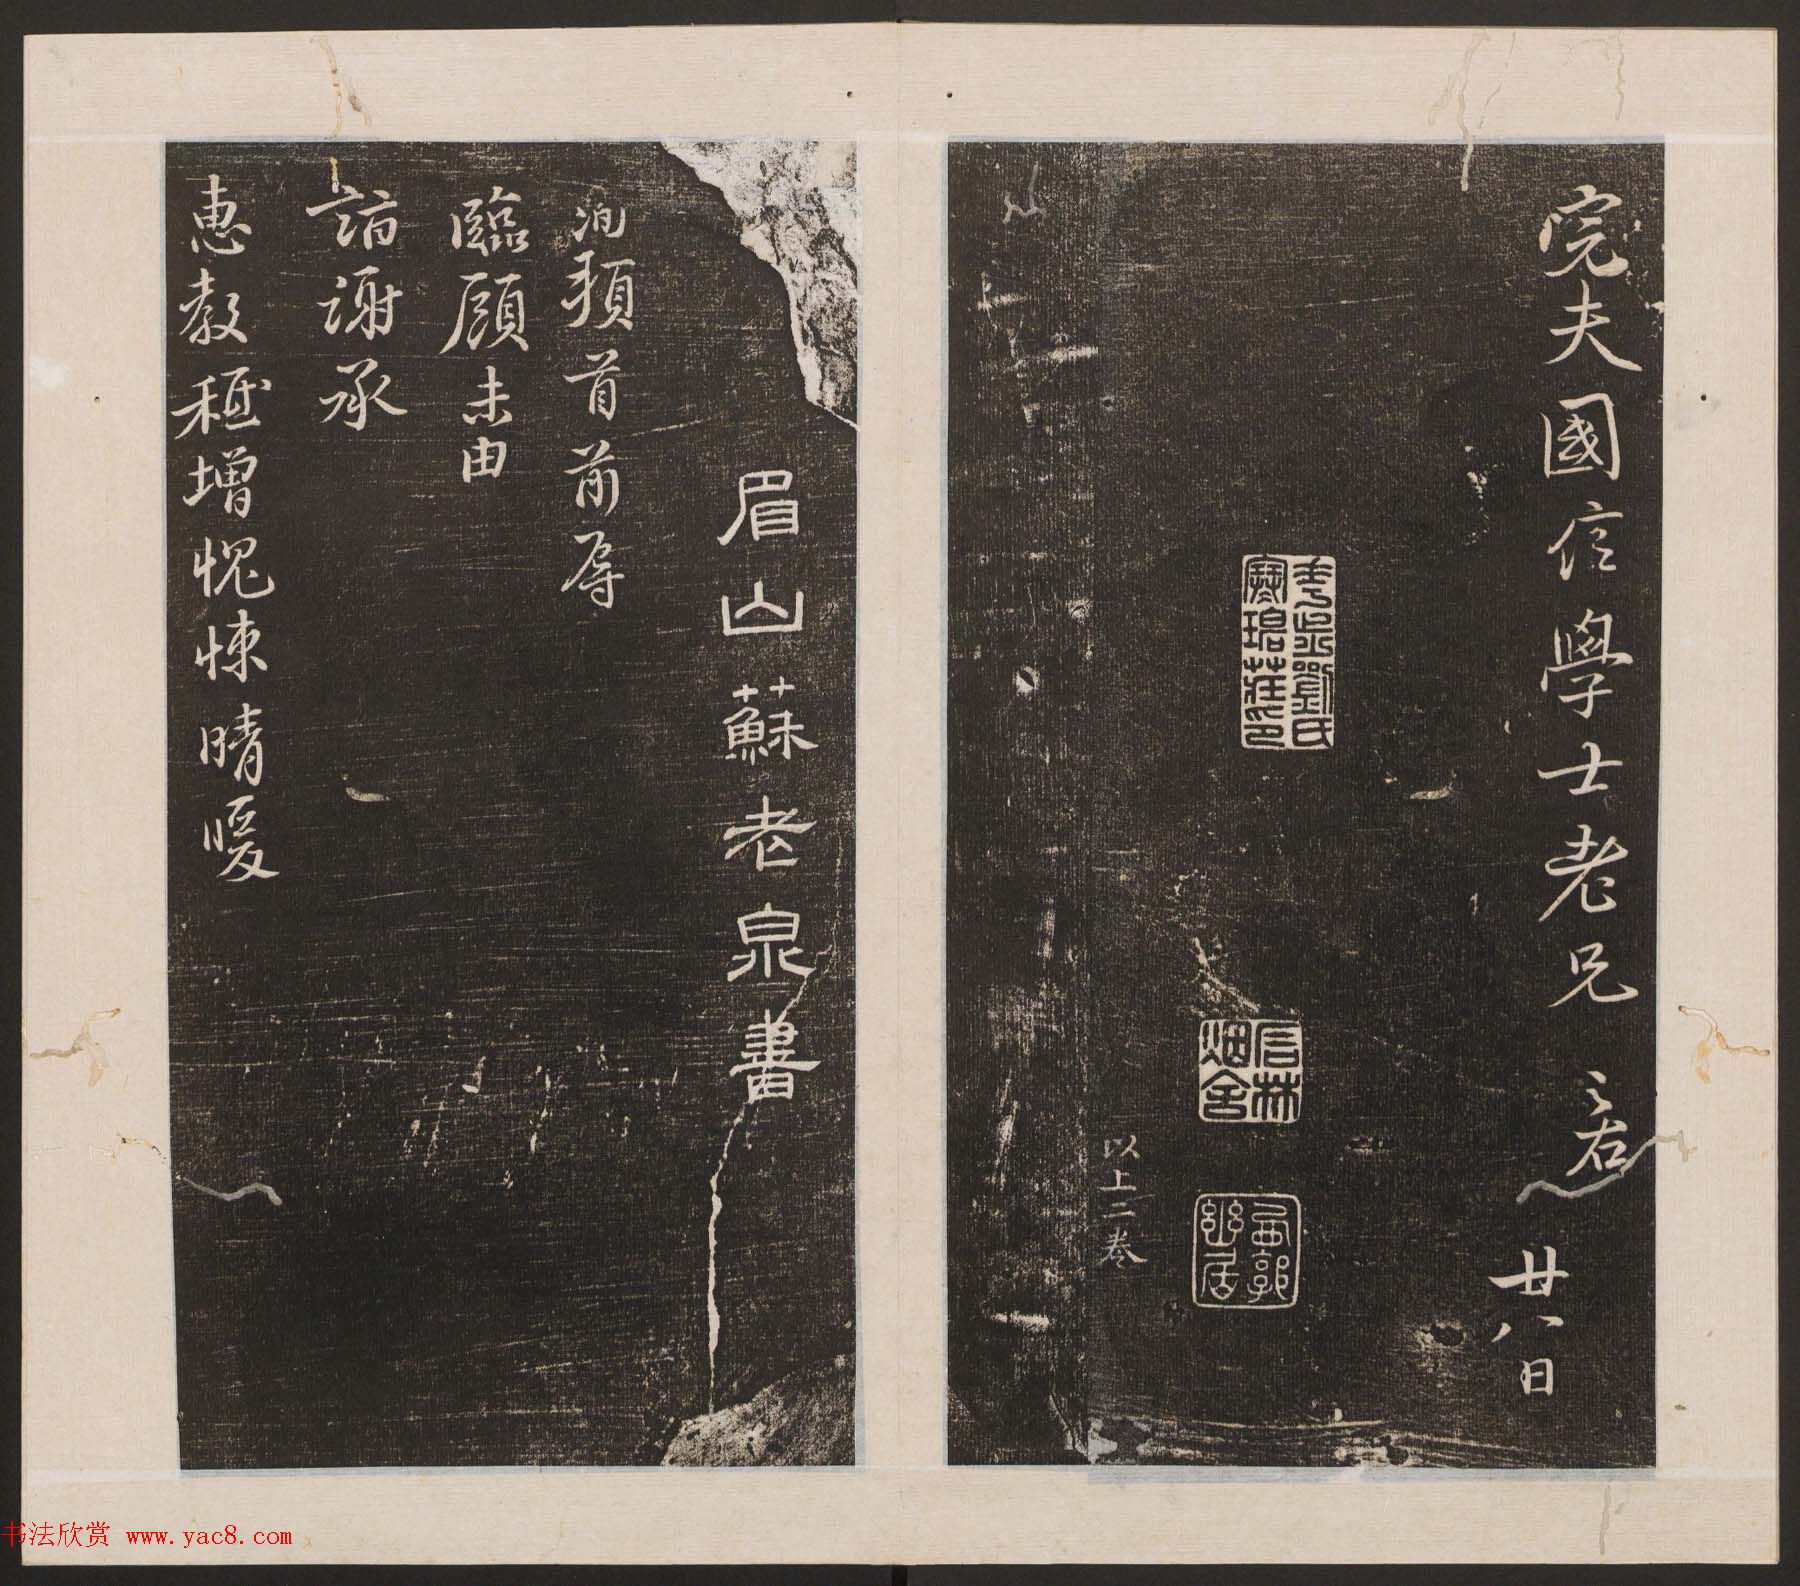 完夫國信學士老兄 廿八日
寒碧莊
以上二卷
眉山蘇老泉書
洵頓首前辱
臨顧未由
詣謝承
惠教秪增愧悚晴暖
书法欣赏 www.yac8.com